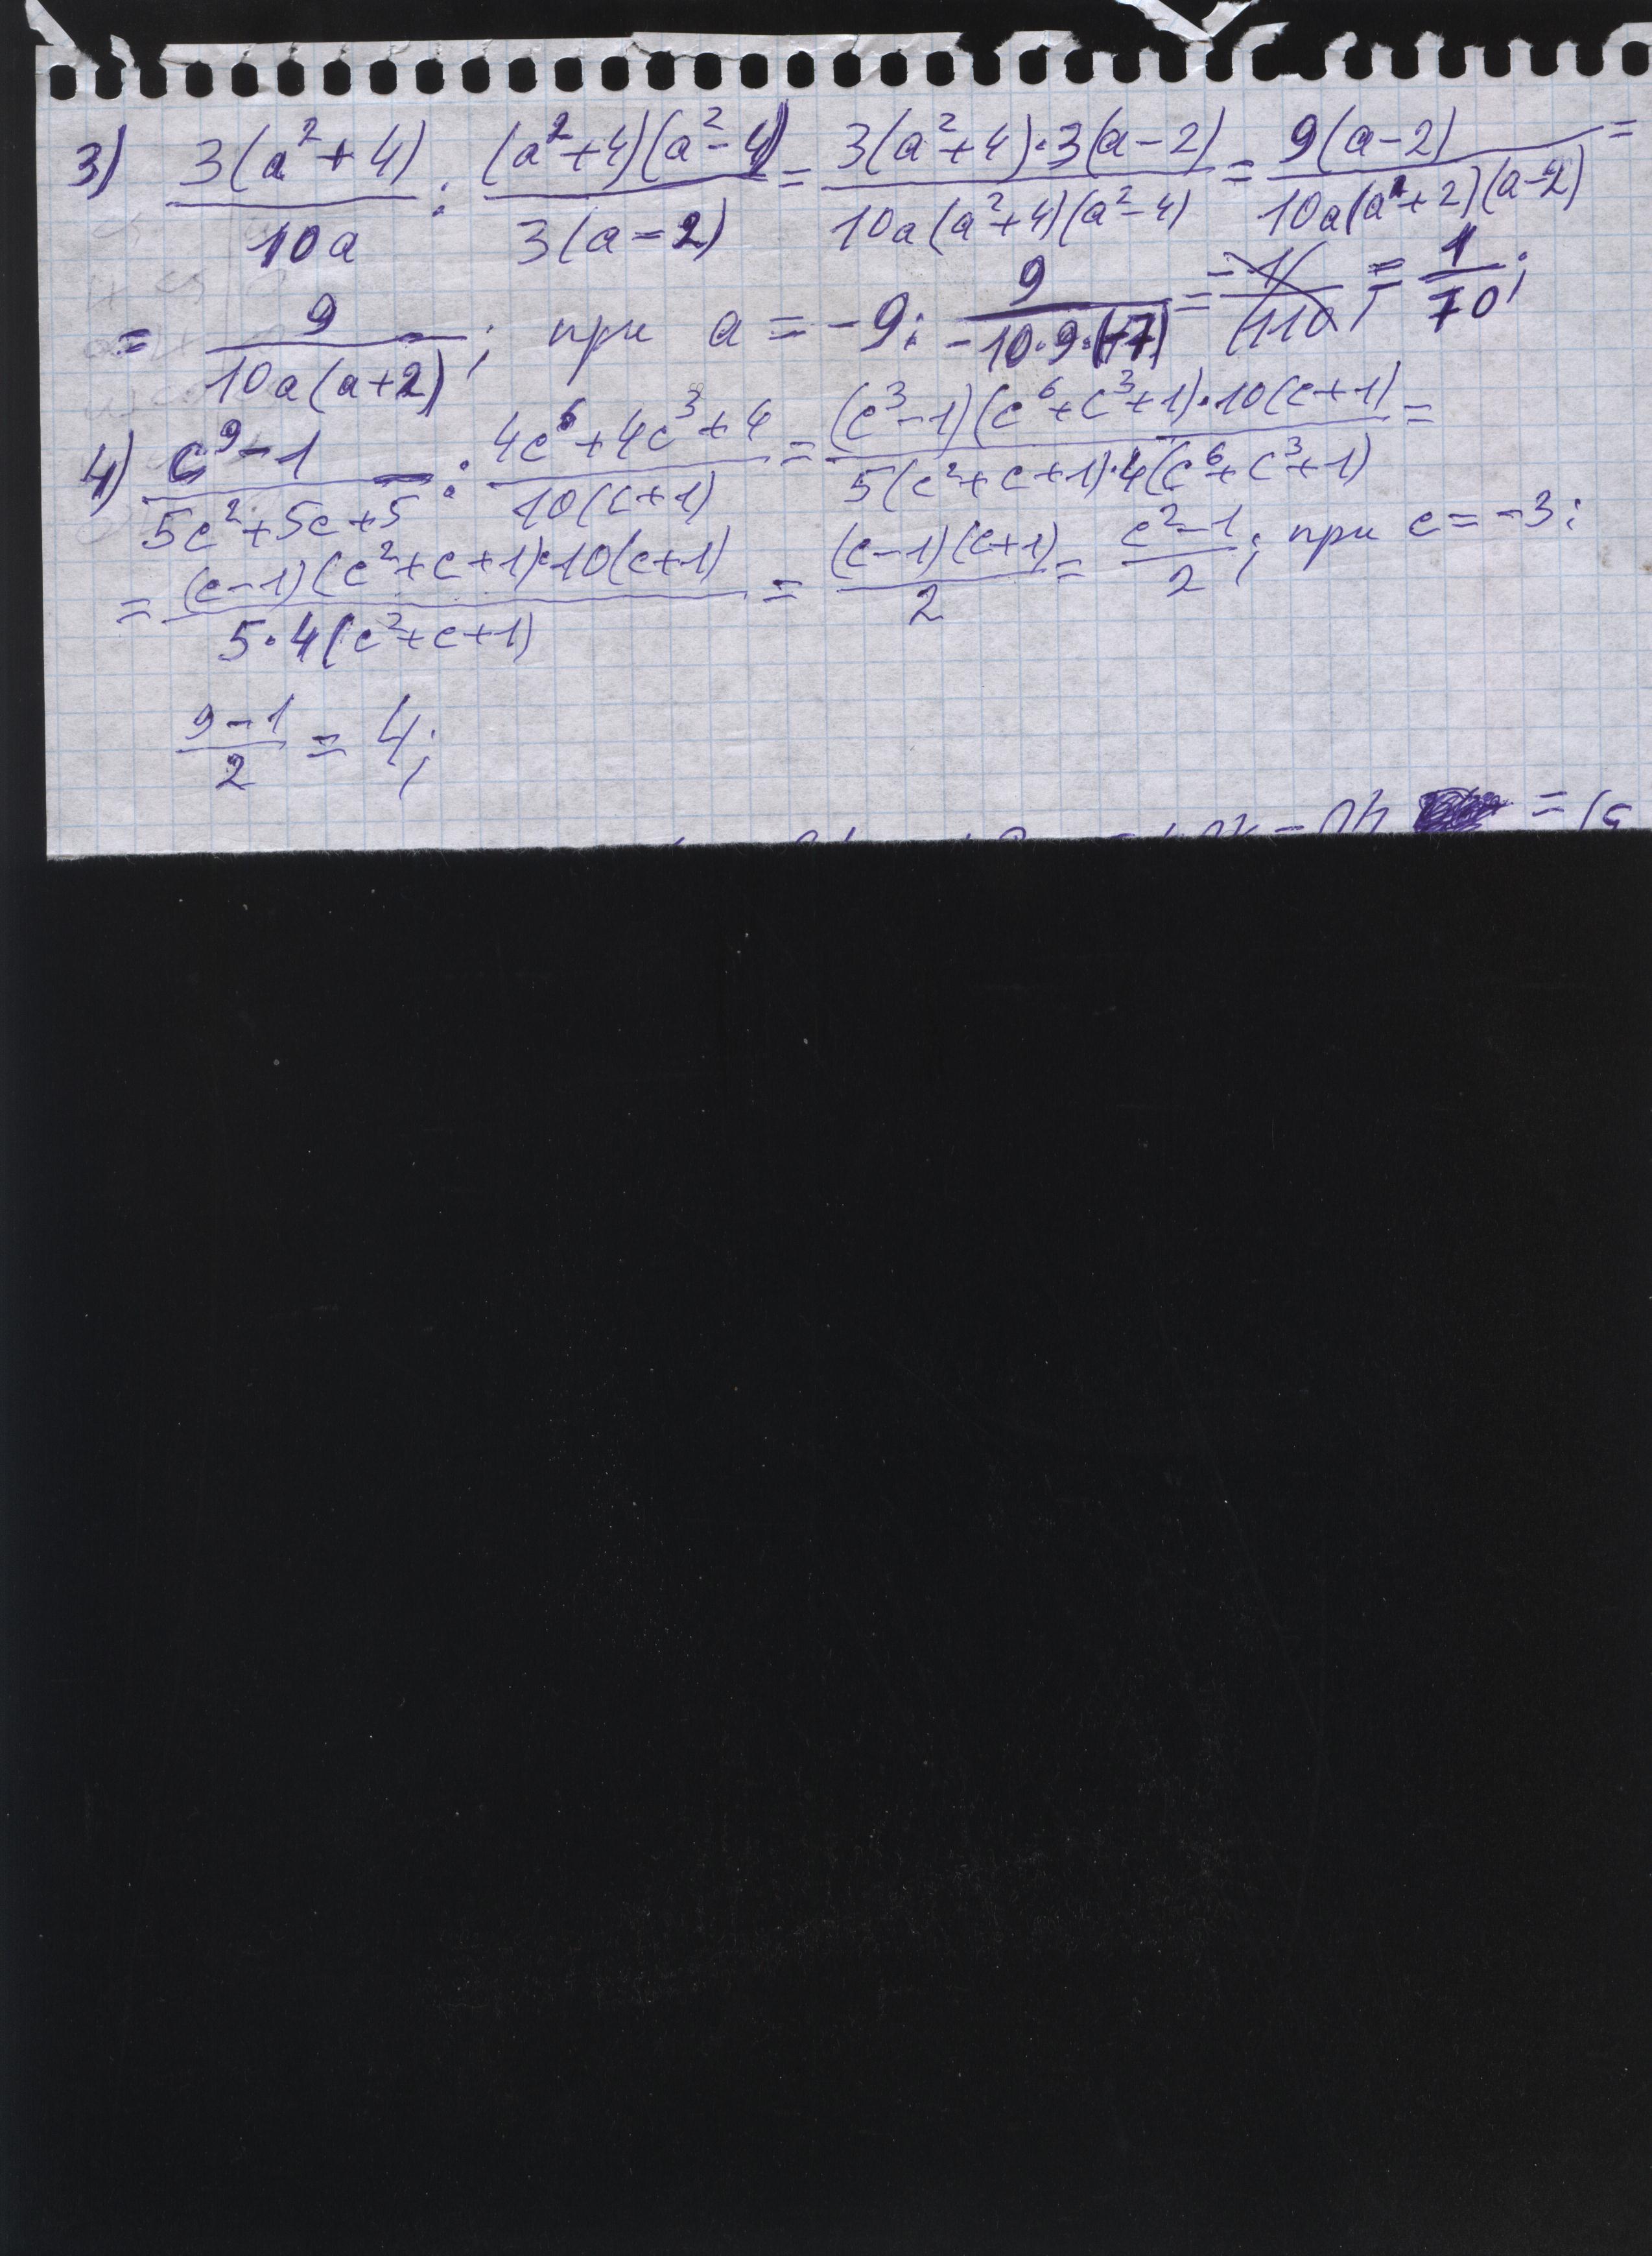 3) 3(a²+4)/10a : (a²+4)(a²-4)/3(a-2) = 3(a²+4)·3(a-2)/10a(a²+4)(a²-4) = 9(a-2)/10a(a+2)(a-2) =
= 9/10a(a+2); при a = -9: 9/-10·9·(-7) = = 1/70;
4) c⁹-1/5c²+5c+5 : 4c⁶+4c³+4/10(c+1) = (c³-1)(c⁶+c³+1)·10(c+1)/5(c²+c+1)·4(c⁶+c³+1) =
= (c-1)(c²+c+1)·10(c+1)/5·4(c²+c+1) = (c-1)(c+1)/2 = c²-1/2; при c = -3:
9-1/2 = 4;